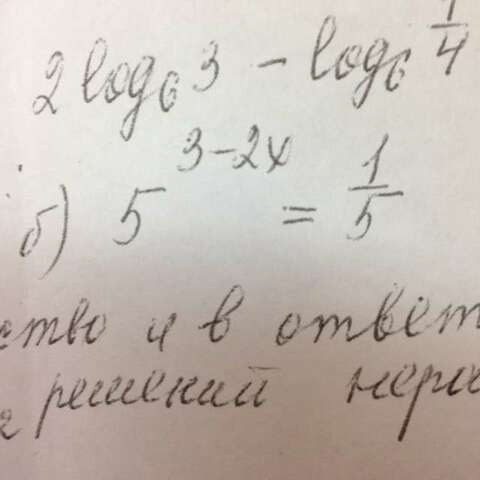 2log₆3 - log₆ 1/4
б) 5^(3-2x) = 1/5
ство и в ответ
решений нера